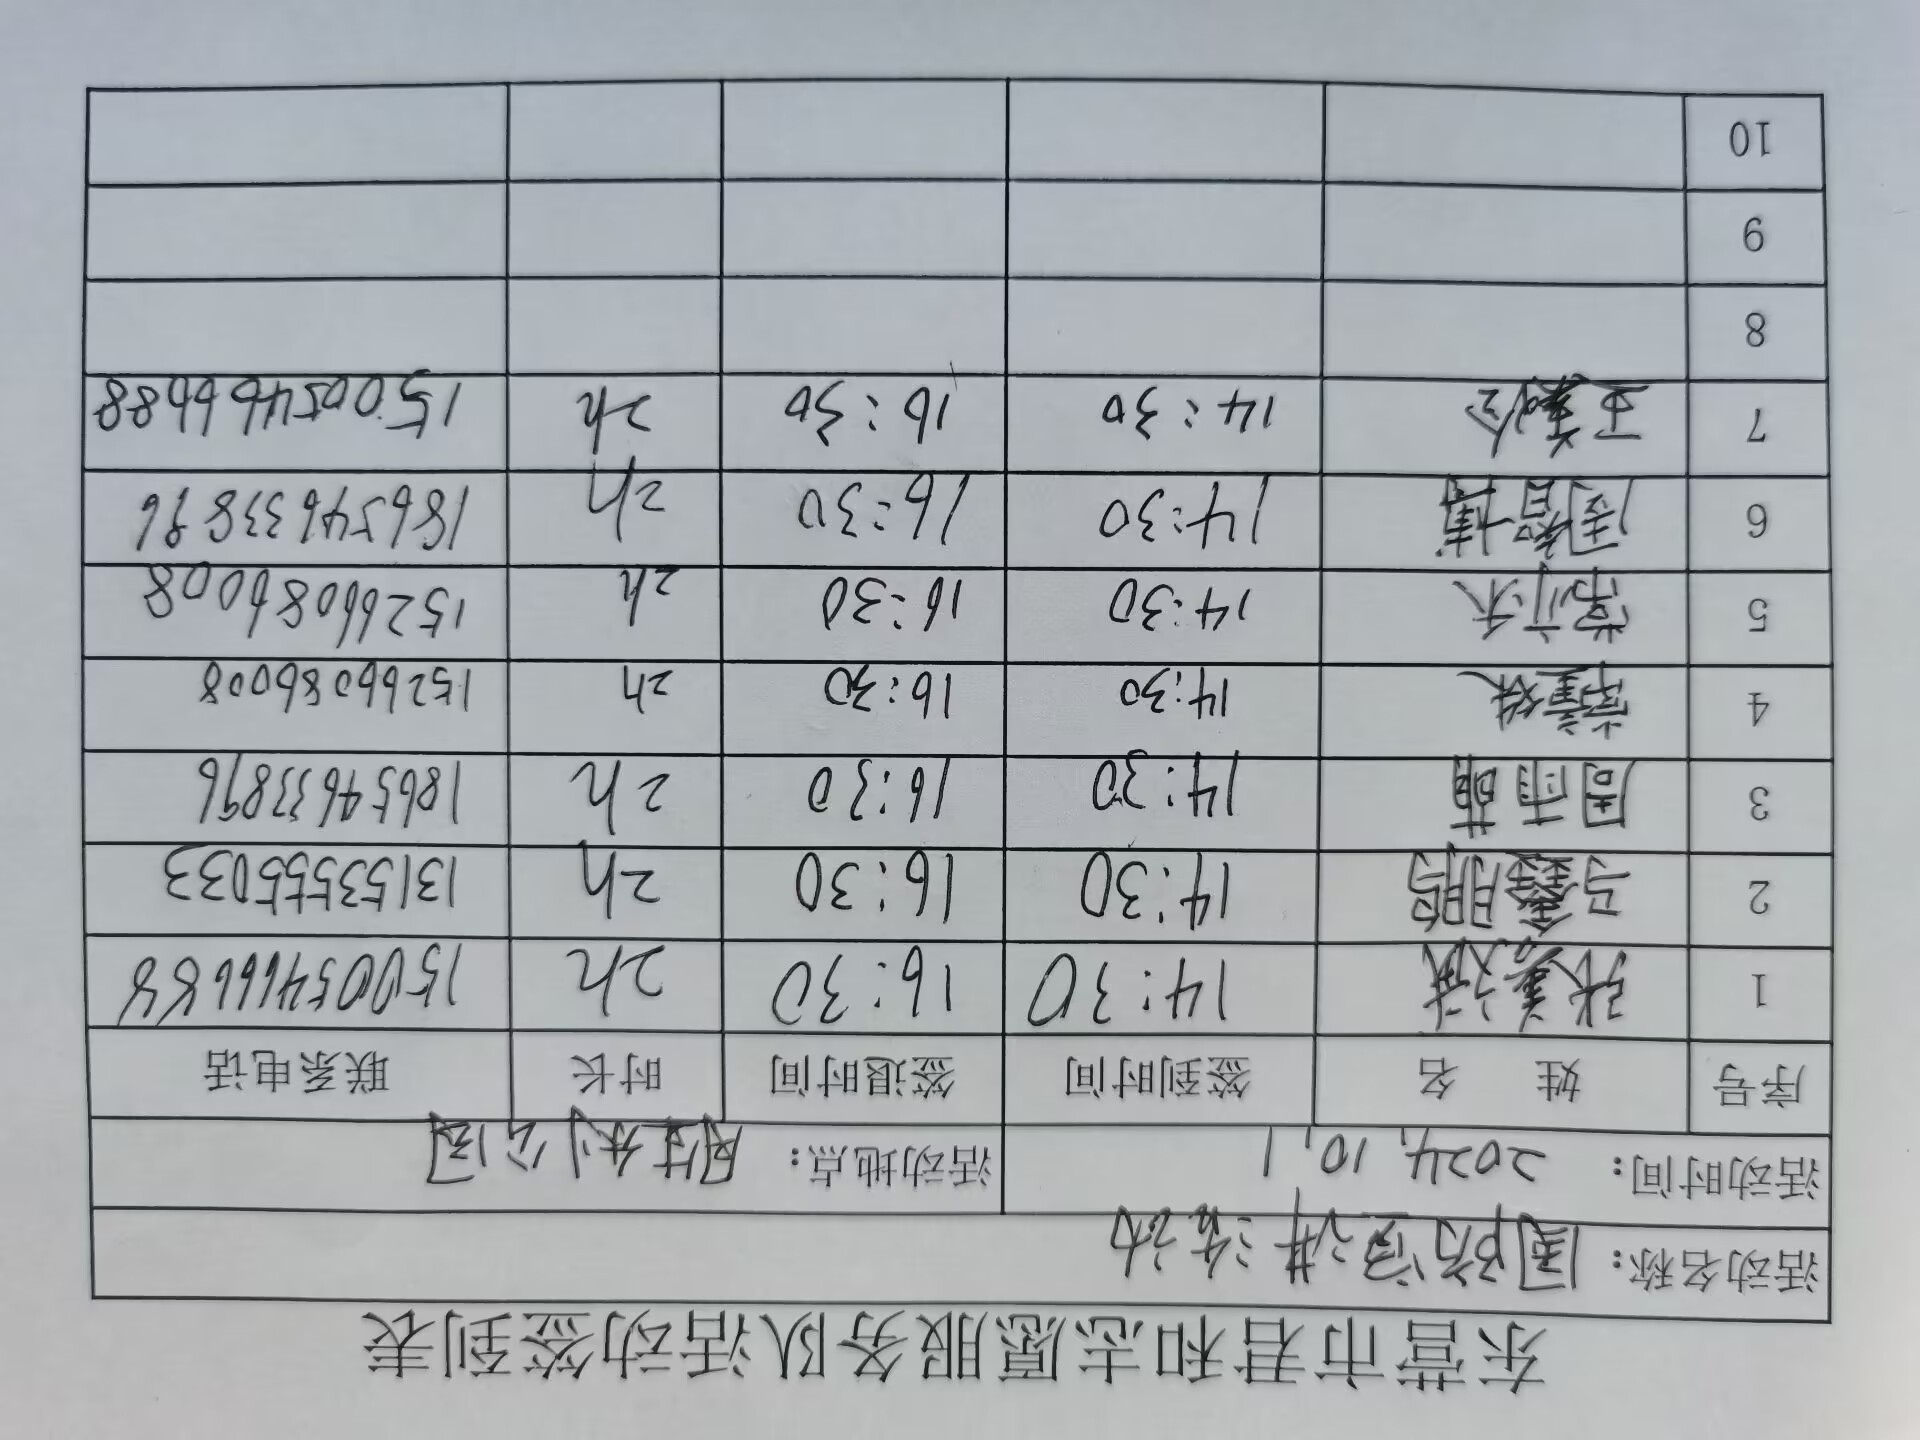 东营市君和志愿服务队活动签到表
活动名称： 国防宣讲活动
活动时间： 2024.10.1 活动地点： 胜利公园
序号 姓 名 签到时间 签退时间 时长 联系电话
1 14:30 16:30 2h 15005466688
2 马鑫鹏 14:30 16:30 2h 13153555033
3 周雨萌 14:30 16:30 2h 18654633896
4 14:30 16:30 2h 15266086008
5 14:30 16:30 2h 15266086008
6 周裕博 14:30 16:30 2h 18654633896
7 14:30 16:30 2h 15005466688
8
9
10